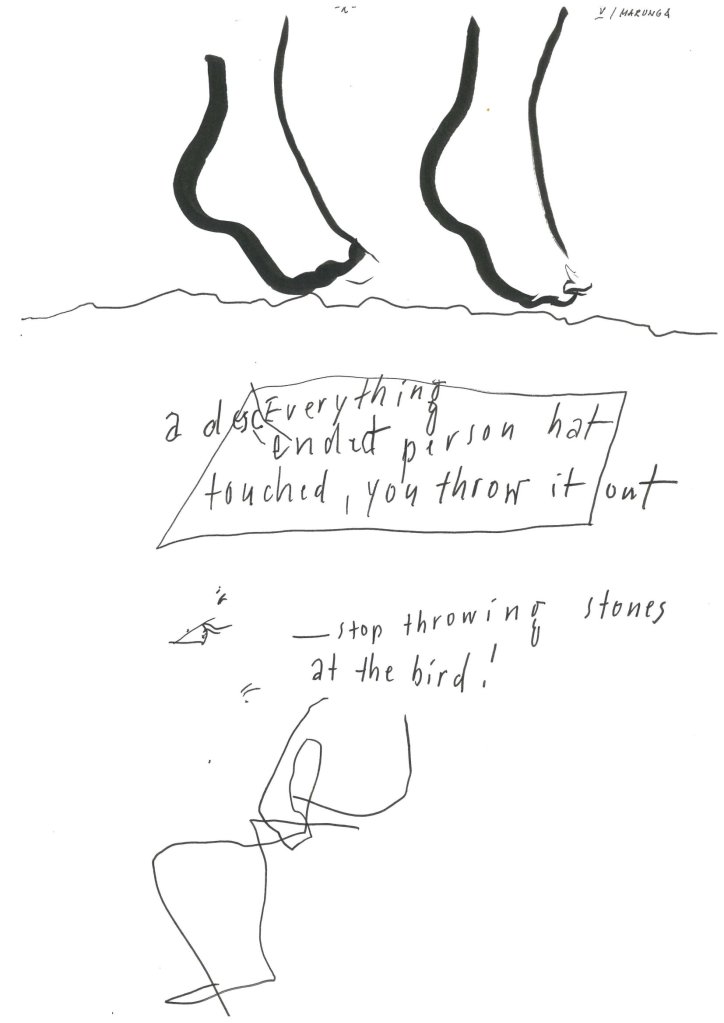 -2-
V / MARUNGA
Everything
a descendet person hat
touched, you throw it out
— stop throwing stones
at the bird!